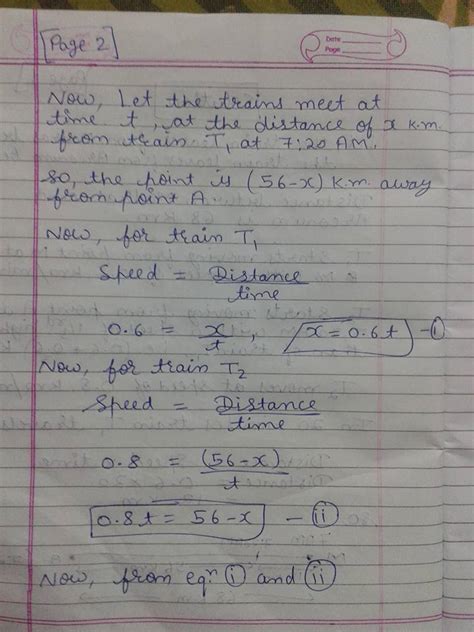 [Page 2]
Date
Page
Now, Let the trains meet at
time t, at the distance of x k.m.
from train T₁ at 7:20 AM.
So, the point is (56-x) k.m. away
from point A.
Now, for train T₁
Speed = Distance/time
0.6 = x/t, x = 0.6 t - i
Now, for train T₂
Speed = Distance/time
0.8 = (56-x)/t
0.8 t = 56-x - ii
Now, from eqⁿ i and ii